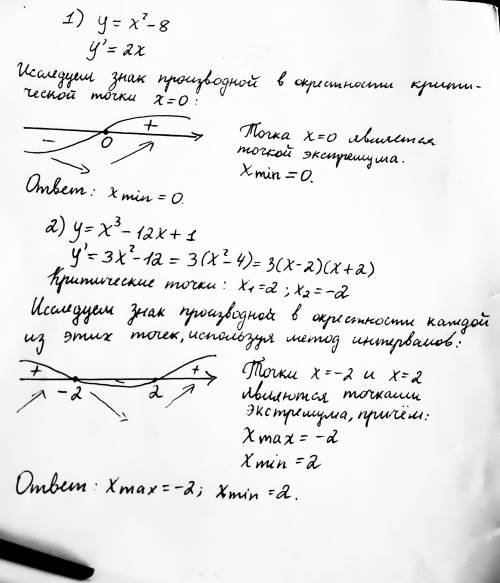 1) y = x² - 8
y' = 2x
Исследуем знак производной в окрестности крити-
ческой точки x=0:
- 0 +
Точка x=0 является
точкой экстремума.
xmin = 0.
Ответ: xmin = 0.
2) y = x³ - 12x + 1
y' = 3x² - 12 = 3(x² - 4) = 3(x-2)(x+2)
Критические точки: x₁=2; x₂=-2
Исследуем знак производной в окрестности каждой
из этих точек, используя метод интервалов:
+ -2 2 +
Точки x=-2 и x=2
являются точками
экстремума, причём:
xmax = -2
xmin = 2
Ответ: xmax = -2; xmin = 2.